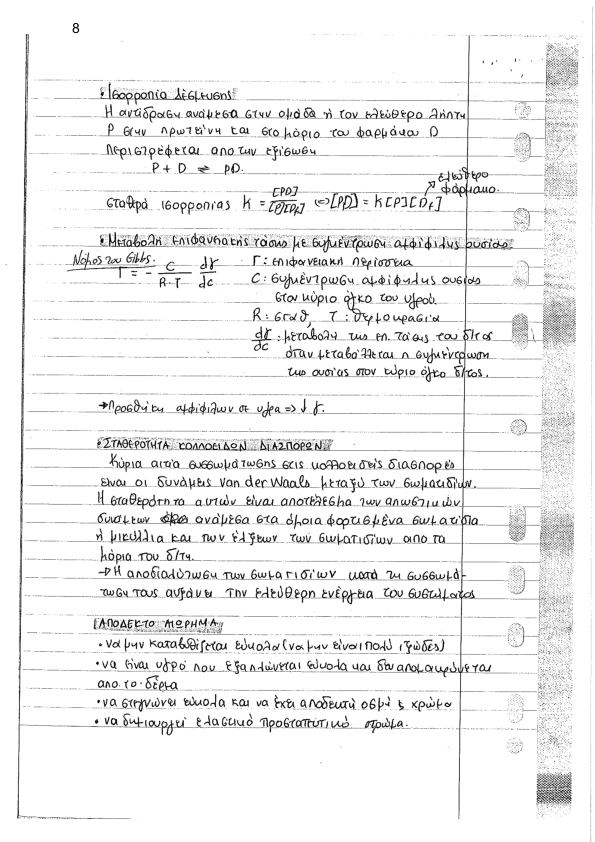 8
• Ισορροπία Δέσμευσης
Η αντίδραση ανάμεσα στην ομάδα ή τον ελεύθερο λήπτη
P στην πρωτεΐνη και στο μόριο του φαρμάκου D
περιστρέφεται απο την εξίσωση
P + D ⇌ PD.
ελεύθερο
φάρμακο.
σταθερά ισορροπίας K = [PD]/[P][Df] ⇔ [PD] = K[P][Df]
• Μεταβολή επιφανειακής τάσης με συγκέντρωση αμφίφιλης ουσίας
Νόμος του Gibbs.
Γ = - C/R·T dγ/dc
Γ: επιφανειακή περίσσεια
C: συγκέντρωση αμφίφιλης ουσίας
στον κύριο όγκο του υγρού.
R: σταθ, T: θερμοκρασία
dγ/dc: μεταβολή της επ. τάσης του δ/τος
όταν μεταβάλλεται η συγκέντρωση
της ουσίας στον κύριο όγκο δ/τος.
→ Προσθήκη αμφίφιλων σε υγρα => ↓ γ.
• ΣΤΑΘΕΡΟΤΗΤΑ ΚΟΛΛΟΕΙΔΩΝ ΔΙΑΣΠΟΡΩΝ
Κύρια αιτία συσσωμάτωσης στις κολλοειδείς διασπορές
είναι οι δυνάμεις Van der Waals μεταξύ των σωματιδίων.
Η σταθερότητα αυτών είναι αποτέλεσμα των απωστικών
δυνάμεων ανάμεσα στα όμοια φορτισμένα σωματίδια
ή μικύλλια και των έλξεων των σωματιδίων απο τα
μόρια του δ/τη.
→ Η αποδιαλύτωση των σωματιδίων κατά τη συσσωμά-
τωση τους αυξάνει την ελεύθερη ενέργεια του συστήματος
ΑΠΟΔΕΚΤΟ ΑΙΩΡΗΜΑ
• να μην καταβυθίζεται εύκολα (να μην είναι πολύ ιξώδες)
• να είναι υγρό που εξαπλώνεται εύκολα και δεν απομακρύνεται
απο το δέρμα
• να στεγνώνει εύκολα και να έχει αποδεκτή οσμή & χρώμα
• να δημιουργεί ελαστικό προστατευτικό στρώμα.